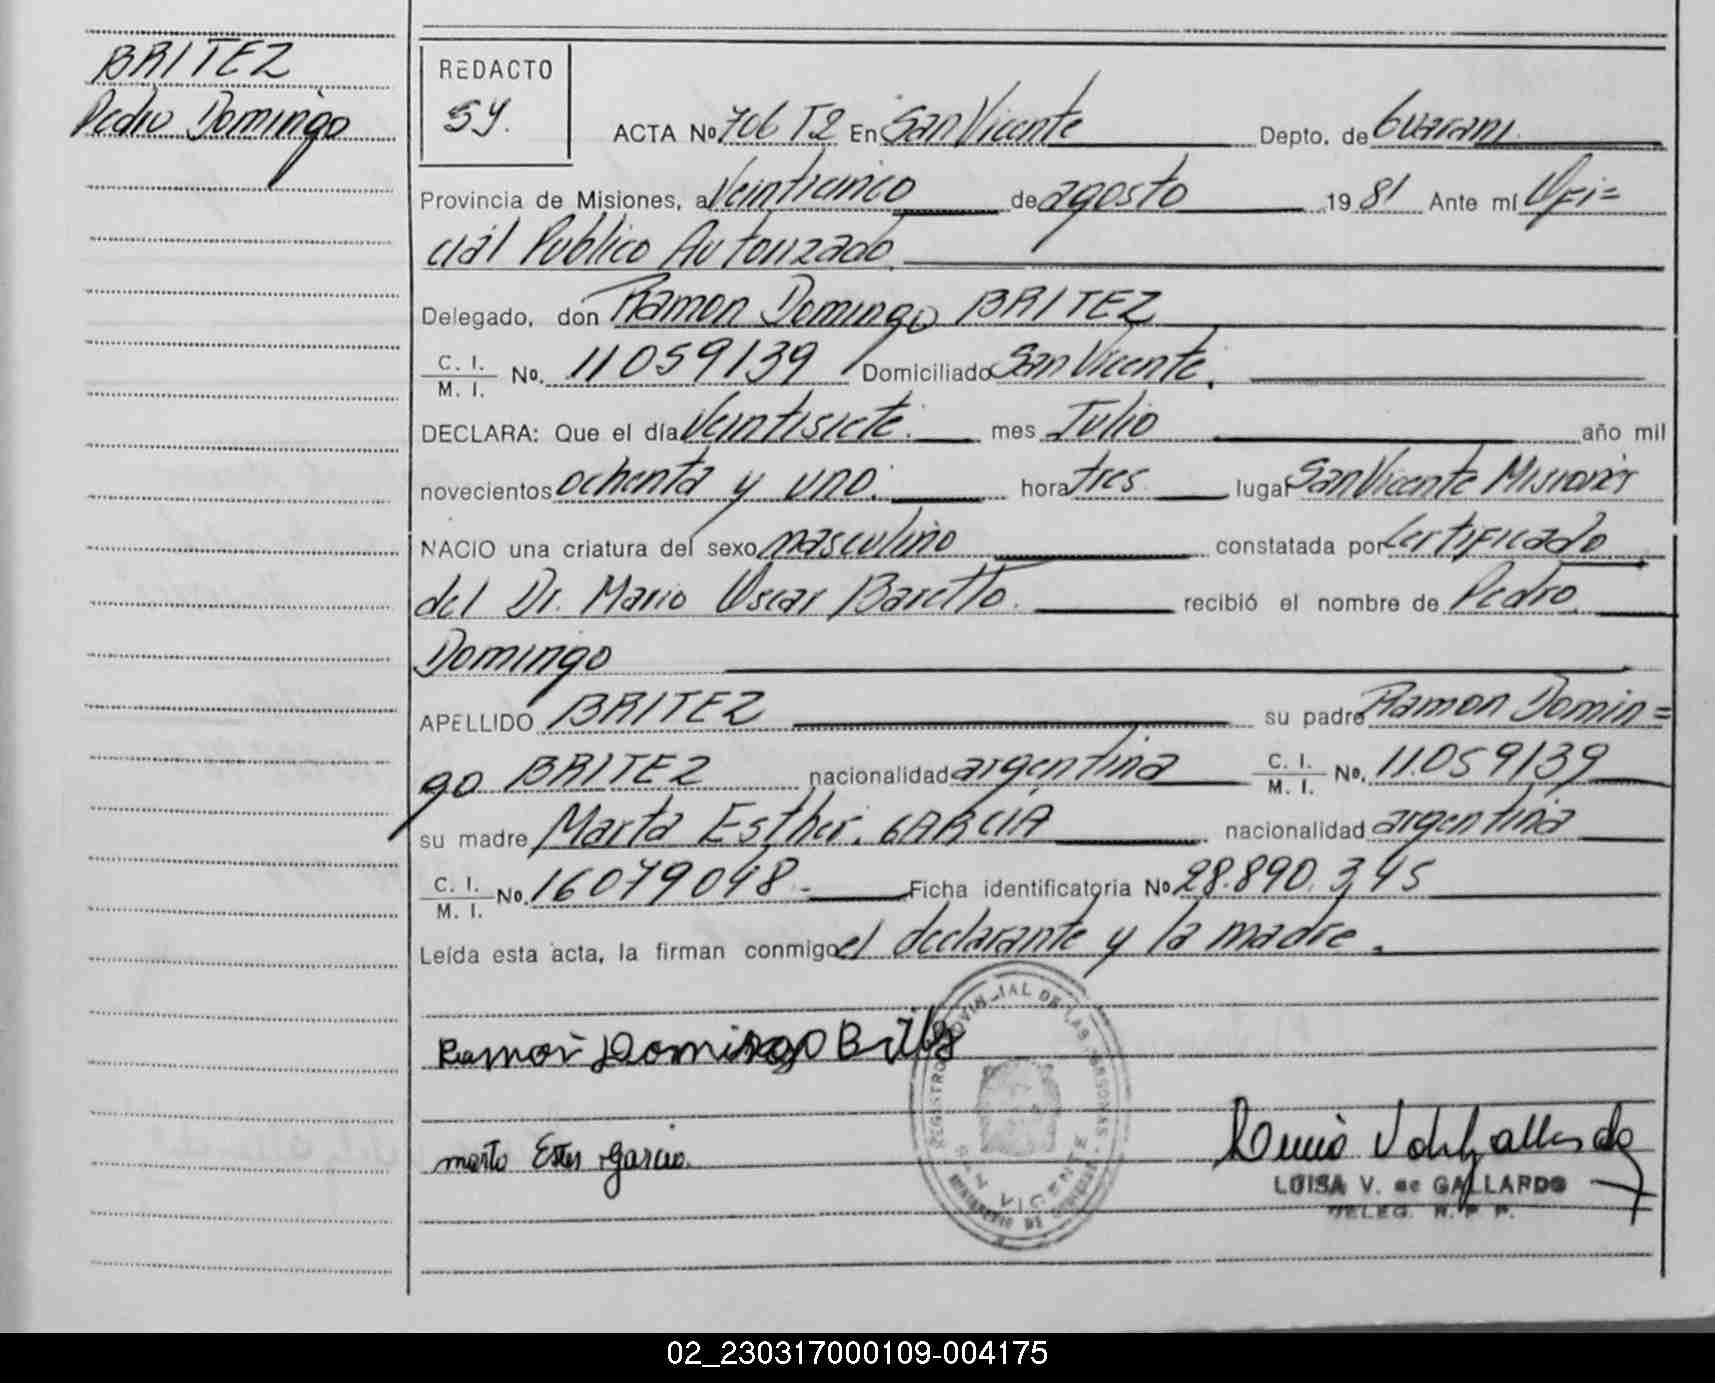 BRITEZ
Pedro Domingo
REDACTO
SY.
ACTA Nº 706 T2 En San Vicente Depto. de Guarani
Provincia de Misiones, a Veinticinco de agosto 1981 Ante mí Ofi=
cial Publico Autorizado
Delegado, don Ramon Domingo BRITEZ
C. I. / M. I. No. 11059139 Domiciliado San Vicente.
DECLARA: Que el día Veintisiete. mes Julio año mil
novecientos ochenta y uno. hora tres lugar San Vicente Misiones
NACIO una criatura del sexo masculino constatada por Certificado
del Dr. Mario Oscar Baretto. recibió el nombre de Pedro
Domingo
APELLIDO BRITEZ su padre Ramon Domin=
go BRITEZ nacionalidad argentina C. I. / M. I. No. 11.059139
su madre Marta Esther. GARCIA nacionalidad argentina
C. I. / M. I. No. 16079048.- Ficha identificatoria Nº 28.890.345
Leída esta acta, la firman conmigo el declarante y la madre.
Ramon Domingo Britez
REGISTRO PROVINCIAL DE LAS PERSONAS
SAN VICENTE
MINISTERIO DE GOBIERNO
marta Ester garcia
LUISA V. de GALLARDO
DELEG. R. P. P.
02_230317000109-004175